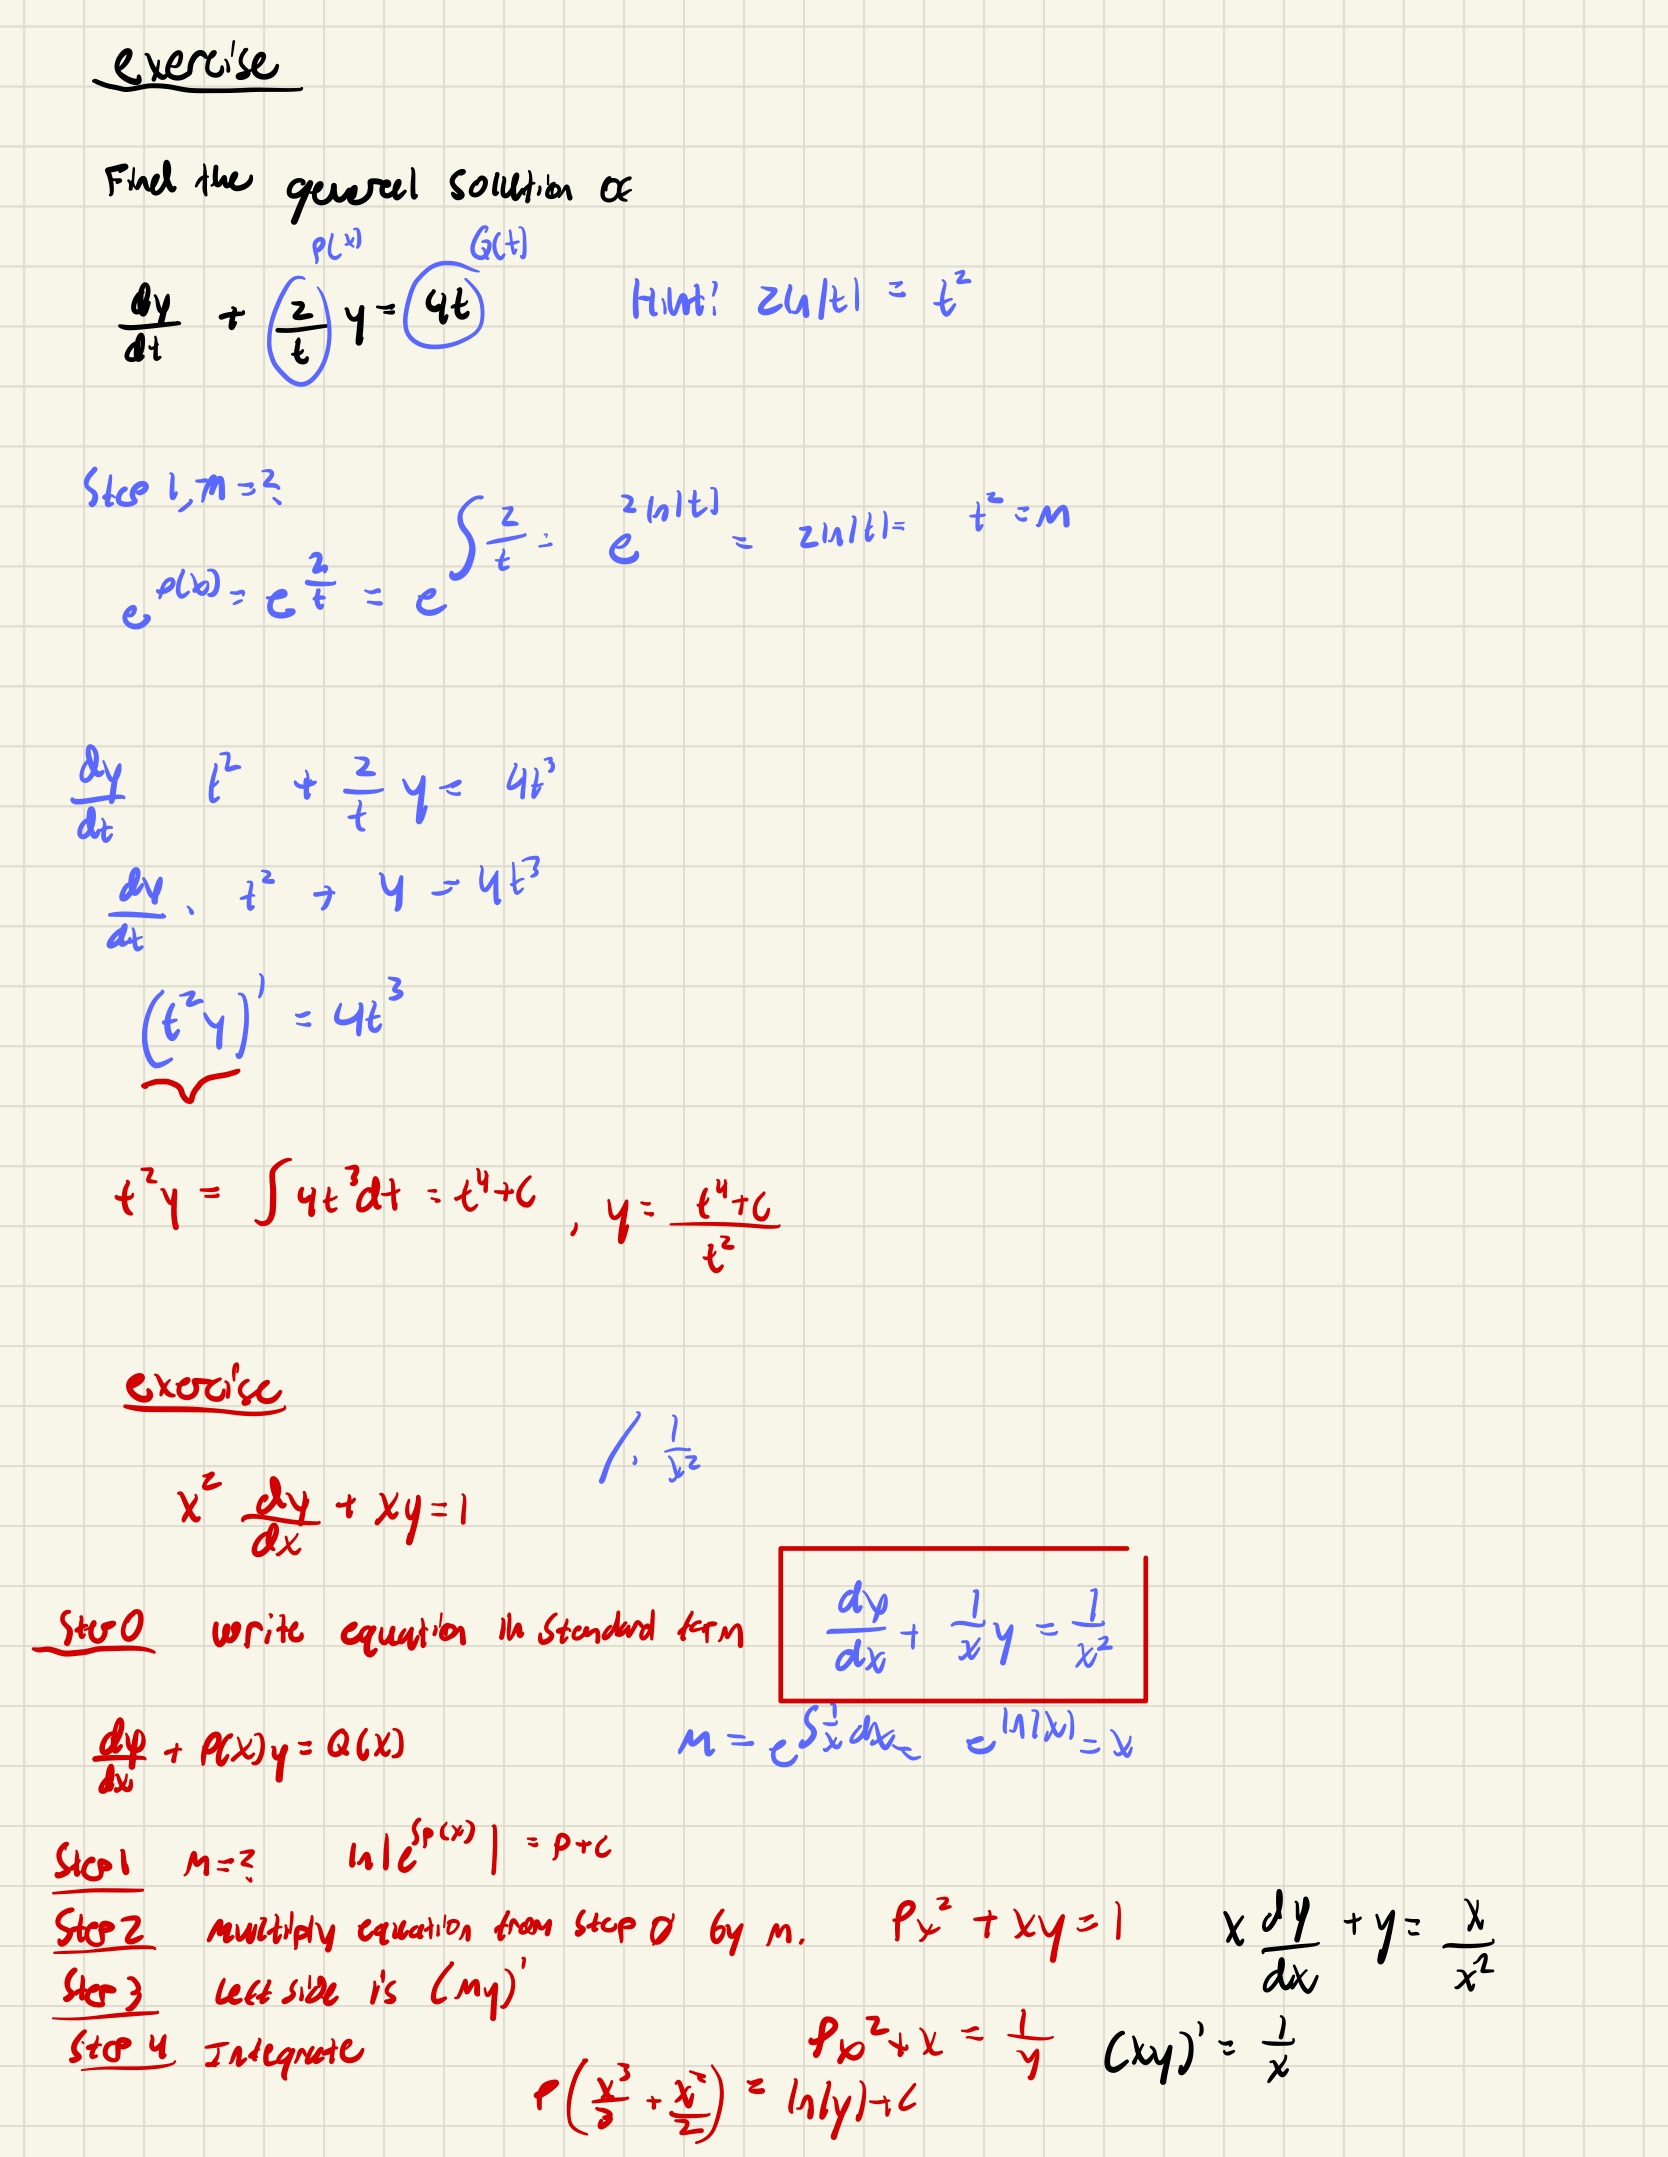 exercise
Find the general solution of
P(x) Q(t)
dy/dt + 2/t y = 4t Hint: 2ln|t| = t²
Step 1, M = ?
e^P(x) = e^(2/t) = e^(∫2/t) = e^(2ln|t|) = 2ln|t| = t² = M
dy/dt t² + 2/t y = 4t³
dy/dt · t² + y = 4t³
(t²y)' = 4t³
t²y = ∫4t³dt = t⁴+C , y = (t⁴+C)/t²
exercise
/· 1/x²
x² dy/dx + xy = 1
Step 0 write equation in standard form dy/dx + 1/x y = 1/x²
dy/dx + P(x)y = Q(x) M = e^(∫1/x dx) = e^(ln|x|) = x
Step 1 M = ? ln|e^(∫P(x))| = P+C
Step 2 multiply equation from step 0 by M. Px² + xy = 1 x dy/dx + y = x/x²
Step 3 Left side is (My)'
Step 4 Integrate Px² + x = 1/y (xy)' = 1/x
P(x³/3 + x²/2) = ln|y|+C